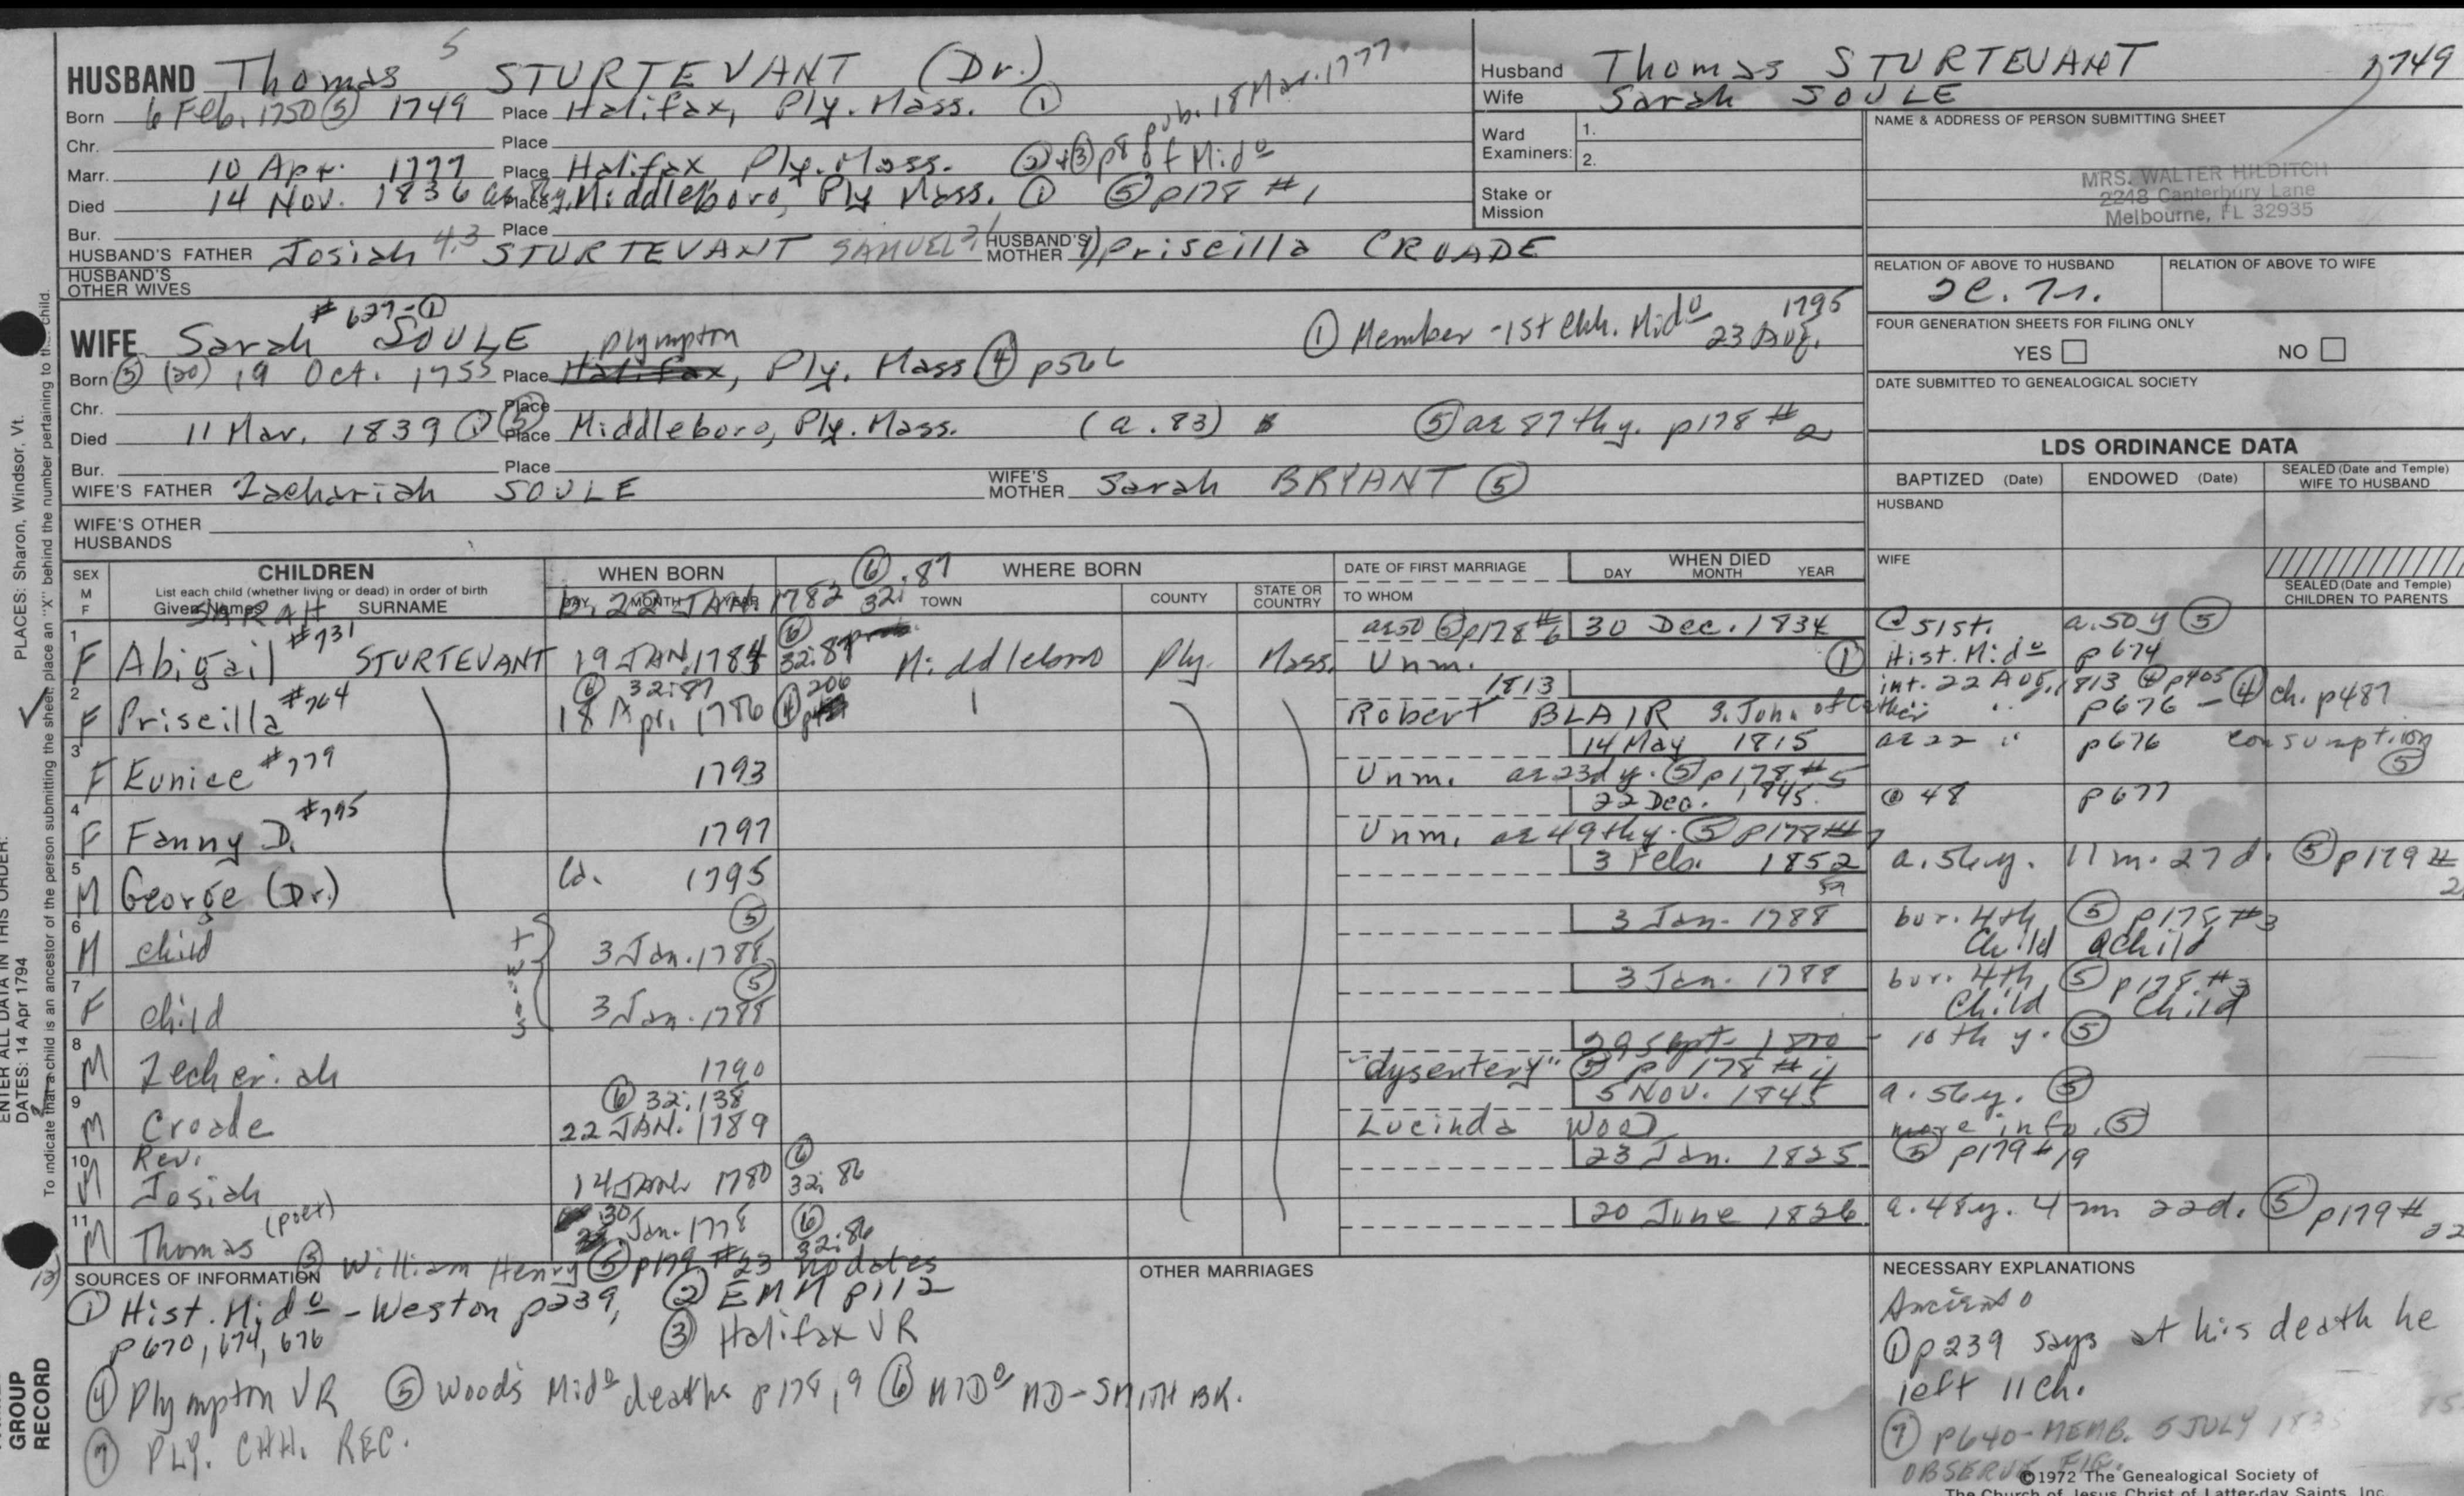 HUSBAND Thomas 5 STURTEVANT (Dr.)
Born 6 Feb. 1750 (3) 1749 Place Halifax, Ply. Mass. (1)
pub. 18 Mar. 1777
Chr. Place
Marr. 10 Apr. 1777 Place Halifax Ply. Mass. (2)+(3) p8 of Mido
Died 14 Nov. 1836 Place Middleboro, Ply Mass. (1) (5) p178 #1
Bur. Place
HUSBAND'S FATHER Josiah 4,3 STURTEVANT SAMUEL 2,1 HUSBAND'S MOTHER 1) Priscilla CROADE
HUSBAND'S OTHER WIVES
Husband Thomas STURTEVANT 1749
Wife Sarah SOULE
Ward Examiners: 1.
2.
Stake or Mission
NAME & ADDRESS OF PERSON SUBMITTING SHEET
MRS. WALTER HILDITCH
2248 Canterbury Lane
Melbourne, FL 32935
RELATION OF ABOVE TO HUSBAND RELATION OF ABOVE TO WIFE
FOUR GENERATION SHEETS FOR FILING ONLY
YES NO
DATE SUBMITTED TO GENEALOGICAL SOCIETY
#627-(1)
WIFE Sarah SOULE
(1) Member - 1st Chh. Mido 23 Aug. 1795
Plympton
Born (3) (20) 19 Oct. 1755 Place Halifax, Ply. Mass (4) p566
Chr. Place
Died 11 Mar. 1839 (1) (5) Place Middleboro, Ply. Mass. (a. 83) (5) ae 87th y. p178 #2
Bur. Place
WIFE'S FATHER Zachariah SOULE WIFE'S MOTHER Sarah BRYANT (5)
WIFE'S OTHER HUSBANDS
LDS ORDINANCE DATA
BAPTIZED (Date) ENDOWED (Date) SEALED (Date and Temple) WIFE TO HUSBAND
HUSBAND
WIFE
SEALED (Date and Temple) CHILDREN TO PARENTS
SEX M F
CHILDREN
List each child (whether living or dead) in order of birth
Given Names SURNAME
WHEN BORN
DAY MONTH YEAR
WHERE BORN
TOWN COUNTY STATE OR COUNTRY
DATE OF FIRST MARRIAGE
TO WHOM
WHEN DIED
DAY MONTH YEAR
SARAH b. 22 JAN. 1782 (6) 32:87
1 ae 50 (5) p178 #6 30 Dec. 1834 @ 51st. a. 50 y (5)
F Abigail #731 STURTEVANT 19 JAN. 1784 (6) 32:87 Middleboro Ply. Mass. Unm. (1) Hist. Mido p674
2 (6) 32:87 1813 int. 22 Aug. 1813 (4) p405
F Priscilla #764 18 Apr. 1786 (4) 206 Robert BLAIR s. John of Carver p676 - (4) ch. p487
3 14 May 1815 ae 22 " p676 consumption (5)
F Eunice #779 1793 Unm. ae 23d y. (5) p178 #5
4 22 Dec. 1845. @ 48 p677
F Fanny D. #795 1797 Unm. ae 49th y. (5) p178 #7
5 3 Feb. 1852 a. 56 y. 11 m. 27 d. (5) p179 #2
M George (Dr.) 1795
6 (5) 3 Jan. 1788 bur. 4th (5) p178 #3
M child 3 Jan. 1788 Child Child
twins
7 (5) 3 Jan. 1788 bur. 4th (5) p178 #3
F child 3 Jan. 1788 Child Child
8 29 Sept. 1800 - 10th y. (5)
M Zecheriah 1790 "dysentery" (5) p178 #4
9 (6) 32:138 5 Nov. 1845 a. 56 y. (5)
M Croade 22 JAN. 1789 Lucinda WOOD more info. (5)
10 Rev. 23 Jan. 1825 (5) p179 #19
M Josiah 14 JAN. 1780 (6) 32:86
11 20 June 1826 a. 48 y. 4 m 22 d. (5) p179 #22
M Thomas (poet) 30 Jan. 1778 (6) 32:86
12) William Henry (5) p179 #23 no dates
SOURCES OF INFORMATION
(1) Hist. Mido - Weston p239, (2) EMM p112
p670, 674, 676 (3) Halifax VR
(4) Plympton VR (5) Woods Mido deaths p178, 9 (6) MIDo MD-SMITH BK.
(7) PLY. CHH. REC.
OTHER MARRIAGES
NECESSARY EXPLANATIONS
(1) p239 says at his death he
left 11 ch.
(7) P640 - MEMB. 5 JULY
©1972 The Genealogical Society of
The Church of Jesus Christ of Latter-day Saints, Inc.
PLACES: Sharon, Windsor, Vt.
To indicate that a child is an ancestor of the person submitting the sheet, place an "X" behind the number pertaining to that child.
ENTER ALL DATA IN THIS ORDER:
DATES: 14 Apr 1794
GROUP
RECORD